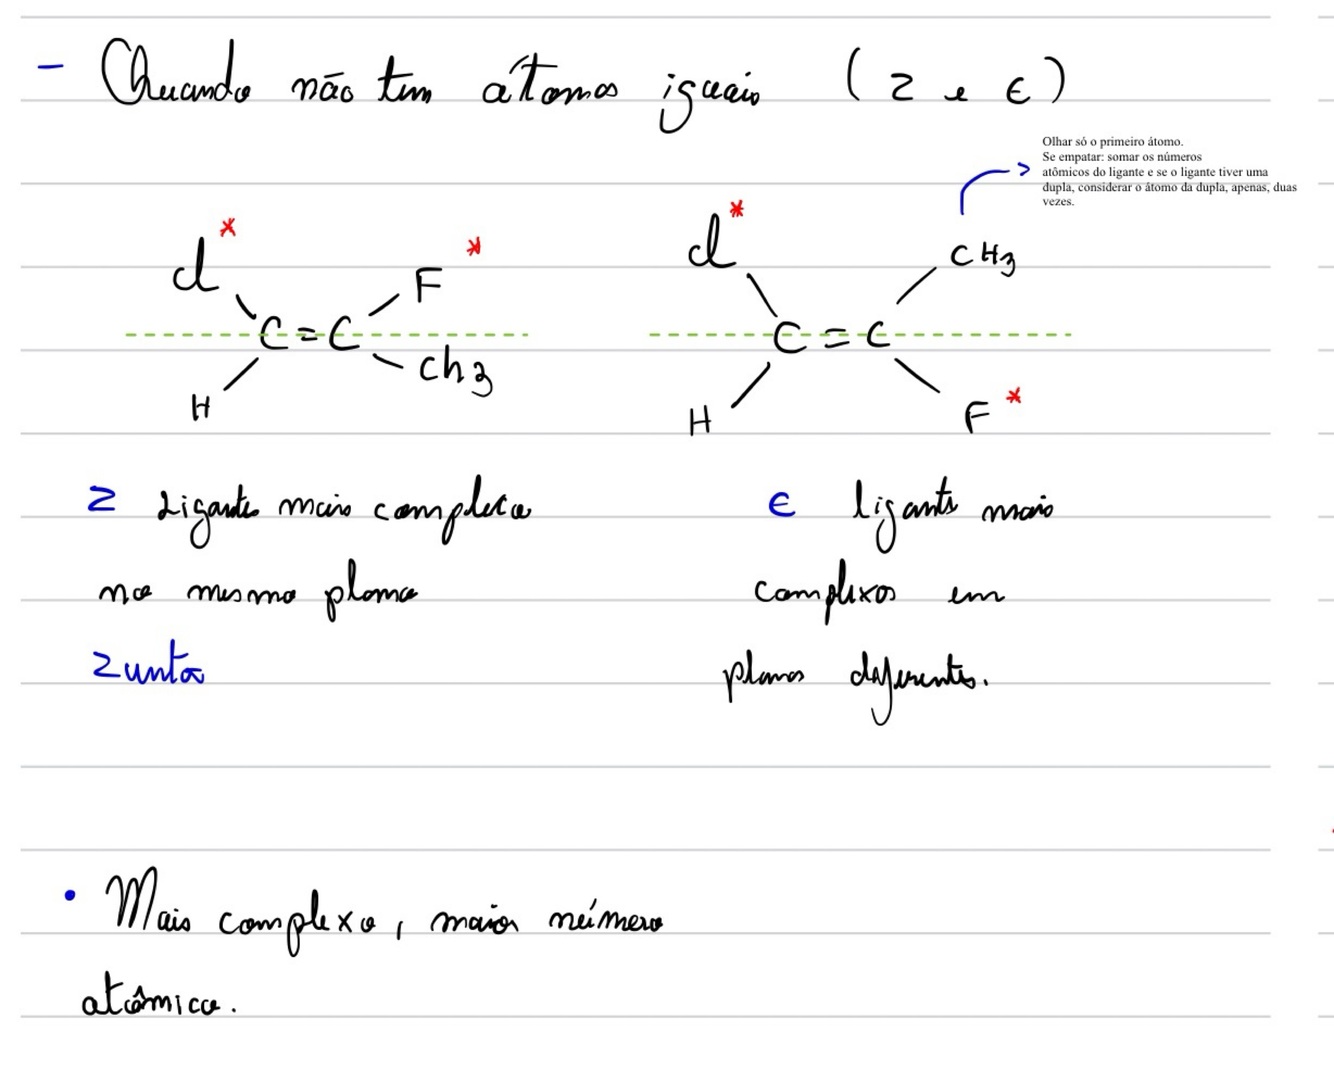 - Quando não tem átomos iguais (Z e E)
Olhar só o primeiro átomo.
Se empatar: somar os números
atômicos do ligante e se o ligante tiver uma
dupla, considerar o átomo da dupla, apenas, duas
vezes.
Cl* F* Cl* CH3
C=C C=C
H Ch3 H F*
Z Ligante mais complexo E ligante mais
no mesmo plano complexos em
Zunto planos diferentes.
• Mais complexo, maior número
atômico.